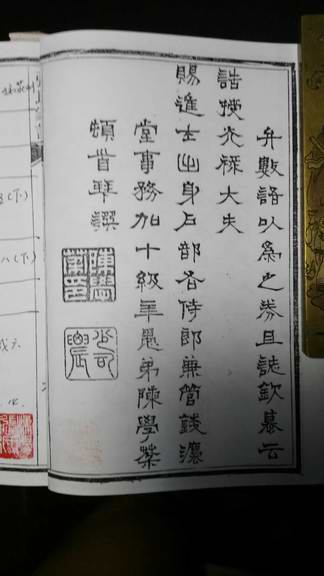 弁數語以為之券且誌欽慕云
誥授光祿大夫
賜進士出身戶部右侍郎兼管錢灋
堂事務加十級年愚弟陳學棻
頓首拜譔
陳學棻印